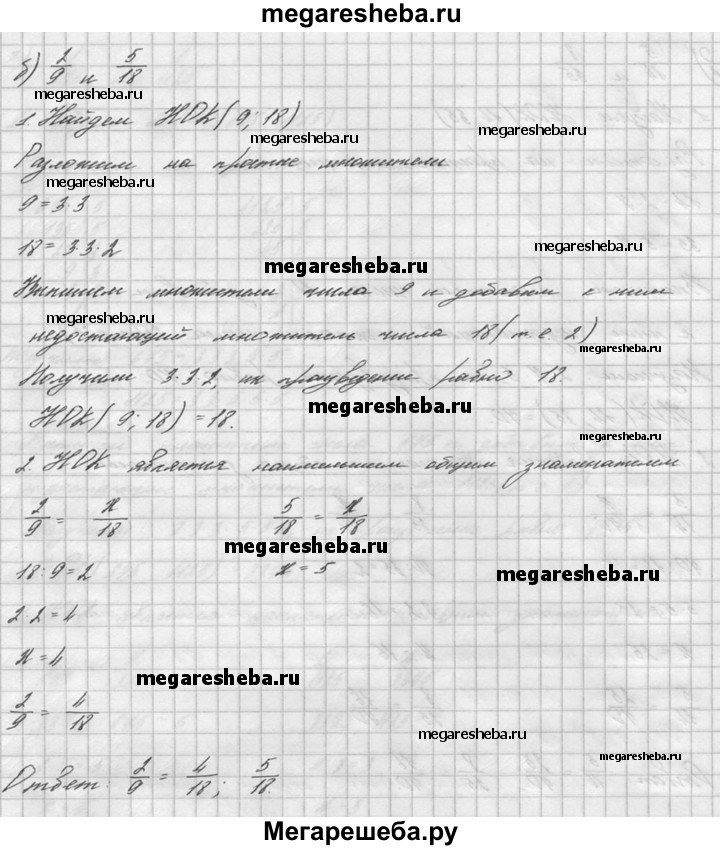 megaresheba.ru
б) 2/9 и 5/18
megaresheba.ru
1. Найдем НОК(9; 18)
megaresheba.ru
Разложим на простые множители
megaresheba.ru
9 = 3·3
18 = 3·3·2
megaresheba.ru
megaresheba.ru
Выпишем множители числа 9 и добавим к ним
megaresheba.ru
недостающий множитель числа 18 (т.е. 2)
megaresheba.ru
Получили 3·3·2, их произведение равно 18.
megaresheba.ru
НОК(9; 18) = 18.
megaresheba.ru
2. НОК является наименьшим общим знаменателем
2/9 = x/18 5/18 = x/18
megaresheba.ru
18:9=2 x = 5
megaresheba.ru
2·2=4
x=4
megaresheba.ru
2/9 = 4/18
megaresheba.ru
megaresheba.ru
Ответ: 2/9 = 4/18; 5/18.
Мегарешеба.ру